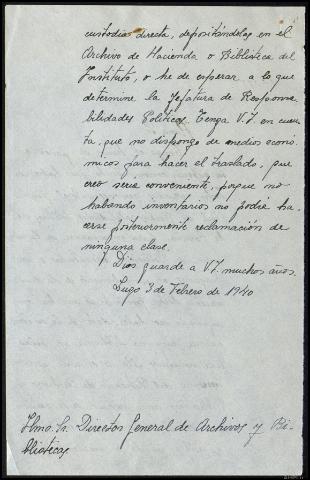 custodia directa, depositándolas en el
Archivo de Hacienda o Biblioteca del
Instituto, o he de esperar a lo que
determine la Jefatura de Responsa-
bilidades Políticas. Tenga V.I. en cuen-
ta, que no dispongo de medios econó-
micos para hacer el traslado, que
creo sería conveniente, porque no
habiendo inventarios no podría ha-
cerse posteriormente reclamación de
ninguna clase.
Dios guarde a V.I. muchos años.
Lugo 3 de Febrero de 1940
Ilmo. Sr. Director General de Archivos y Bi-
bliotecas